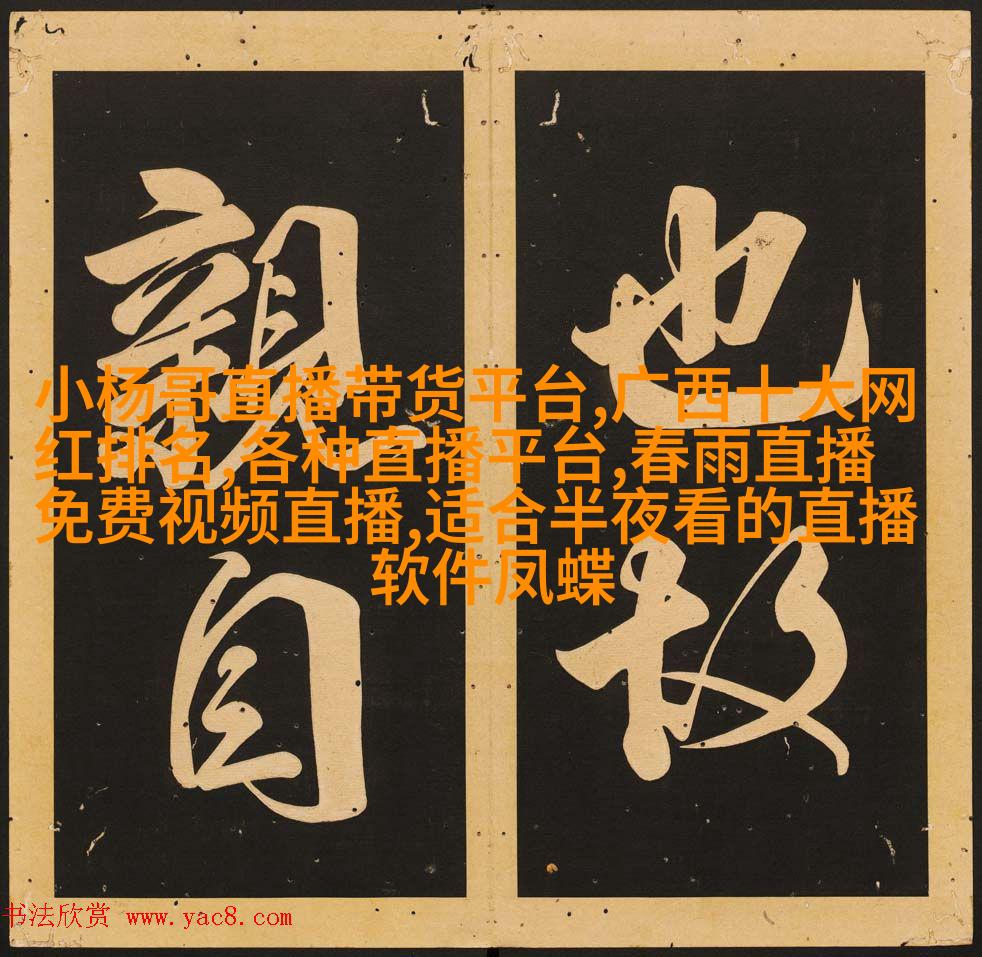 也故
親自
小杨哥直播带货平台,广西十大网
红排名,各种直播平台,春雨直播
免费视频直播,适合半夜看的直播
软件凤蝶
书法欣赏 www.yac8.com